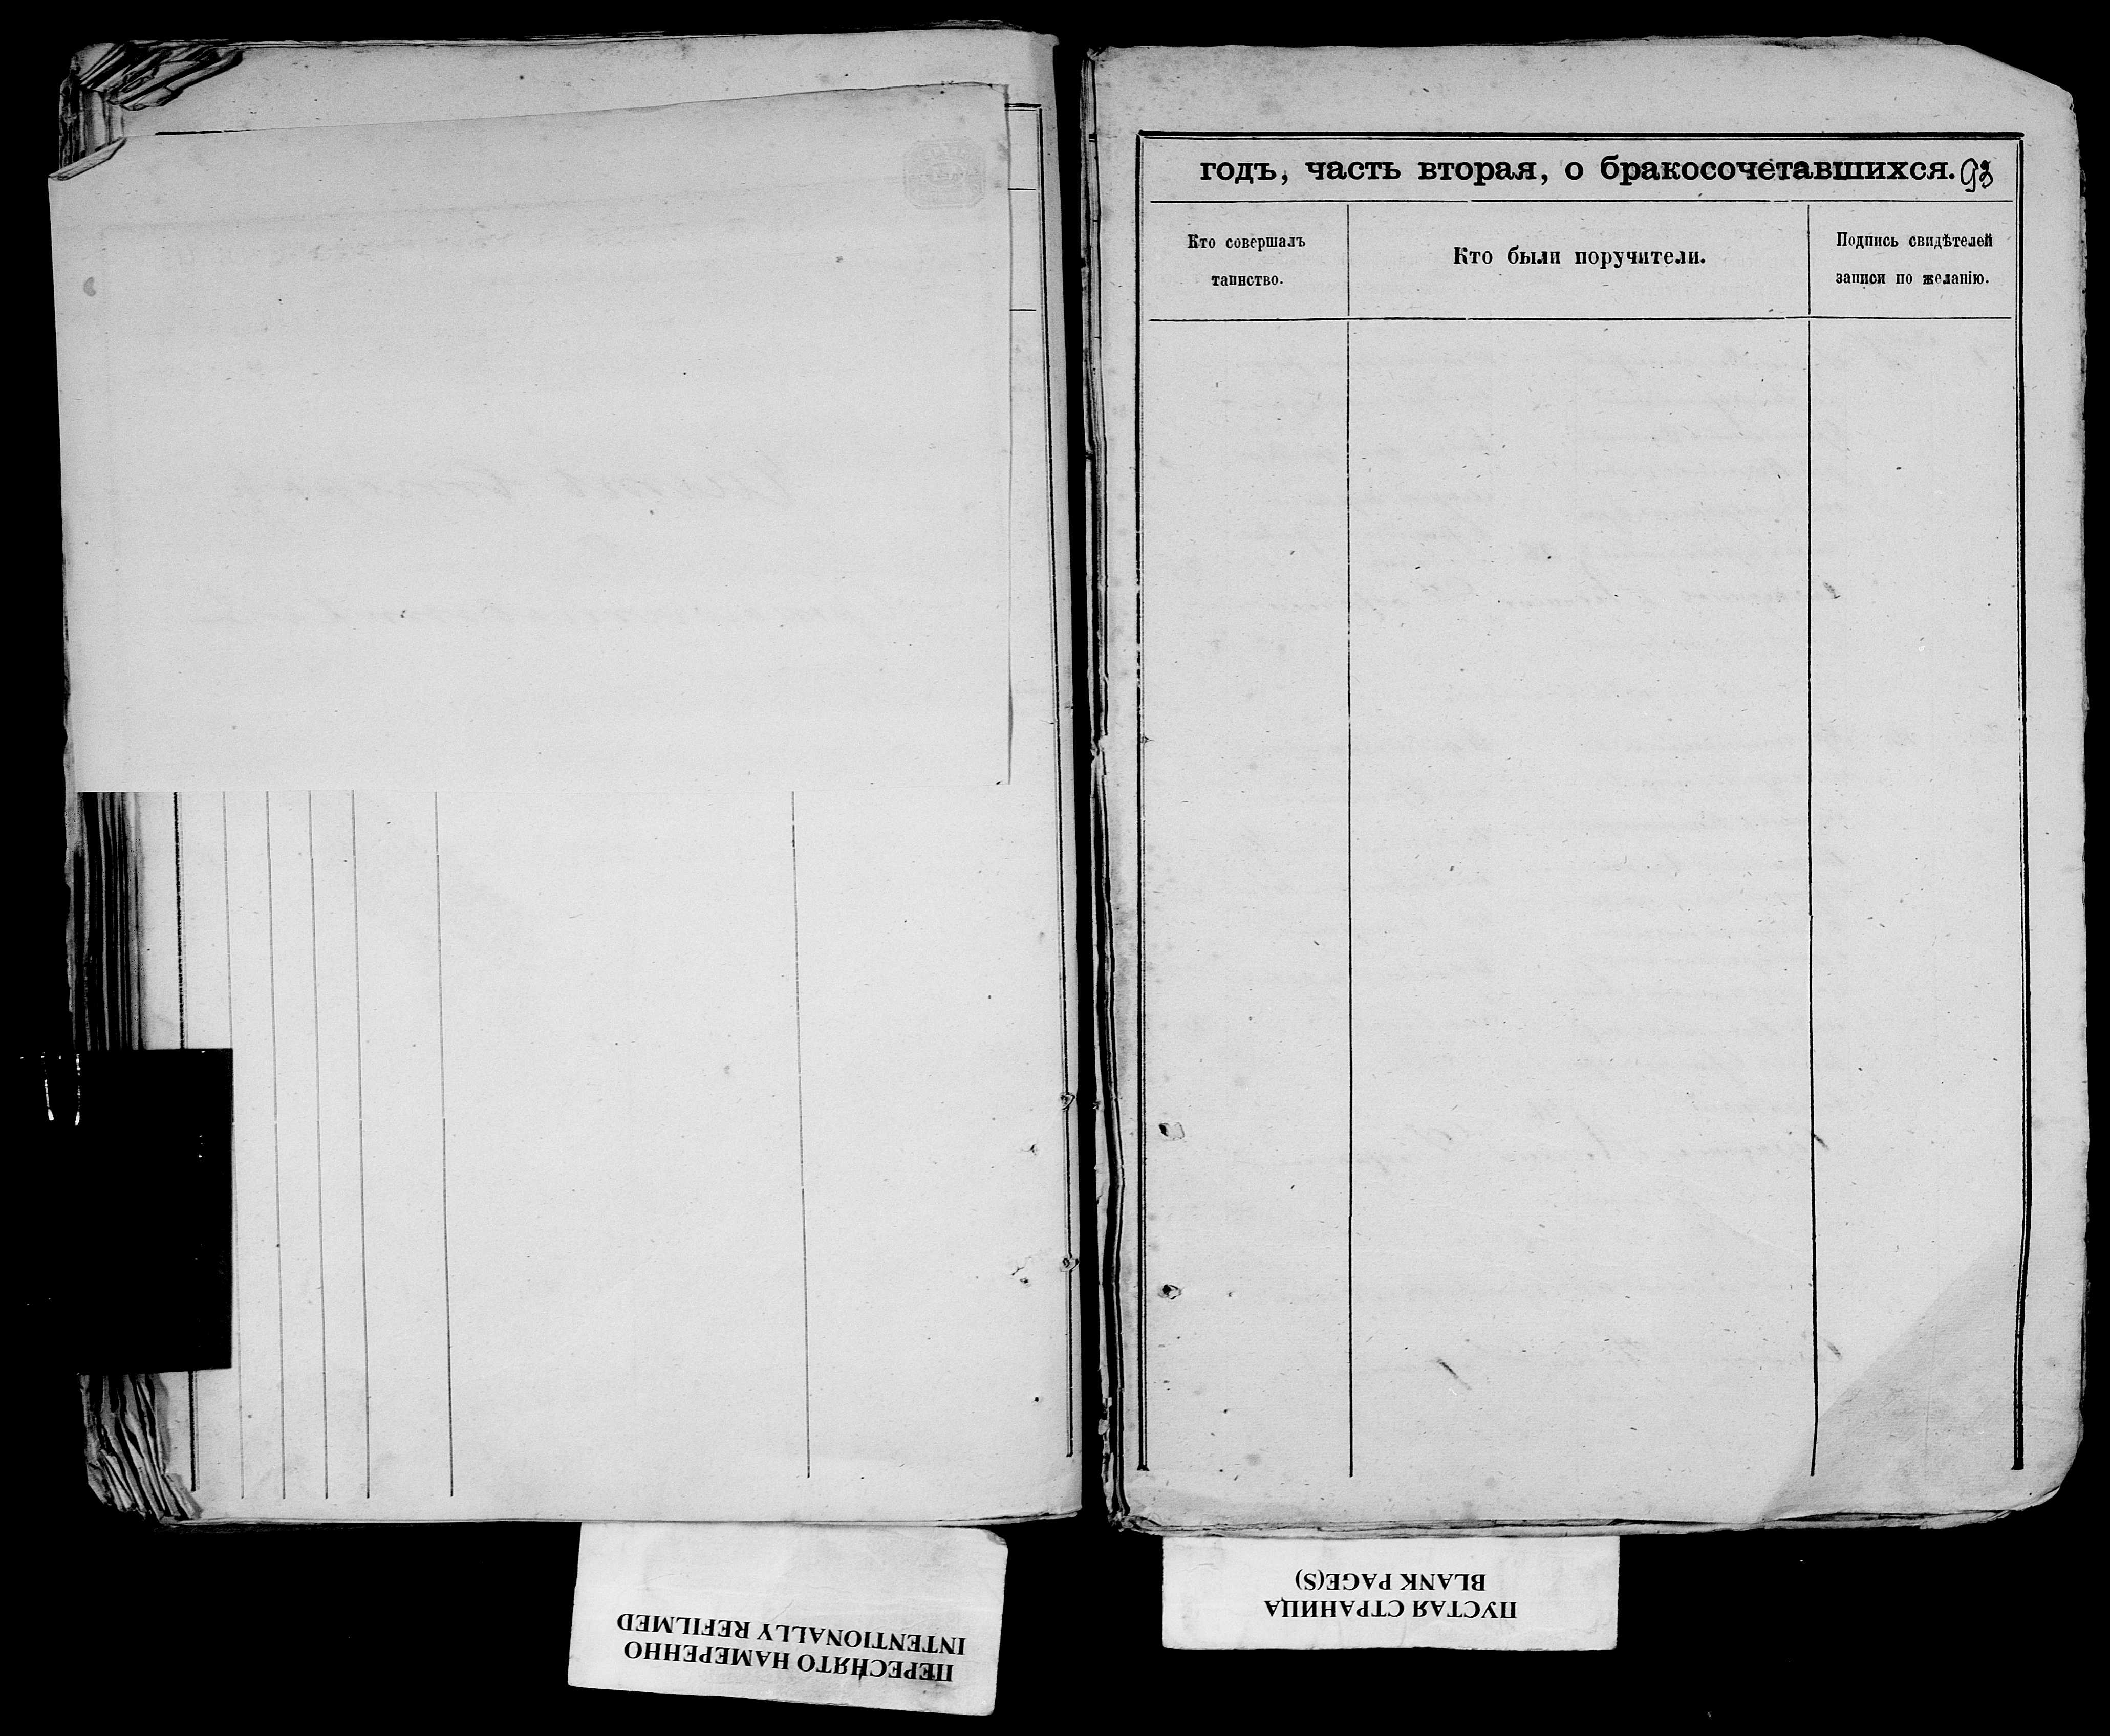 годъ, часть вторая, о бракосочетавшихся. 93
Кто совершалъ
таинство.
Кто были поручители.
Подпись свидѣтелей
записи по желанію.
ПЕРЕСНЯТО НАМЕРЕННО
INTENTIONALLY REFILMED
ПУСТАЯ СТРАНИЦА
BLANK PAGE(S)